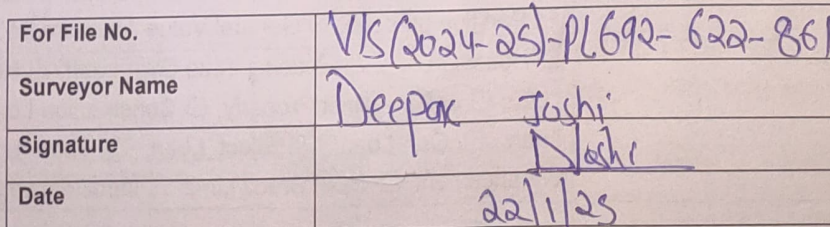 For File No. VIS(2024-25)-PL692-622-861
Surveyor Name Deepak Joshi
Signature DJoshi
Date 22/1/25